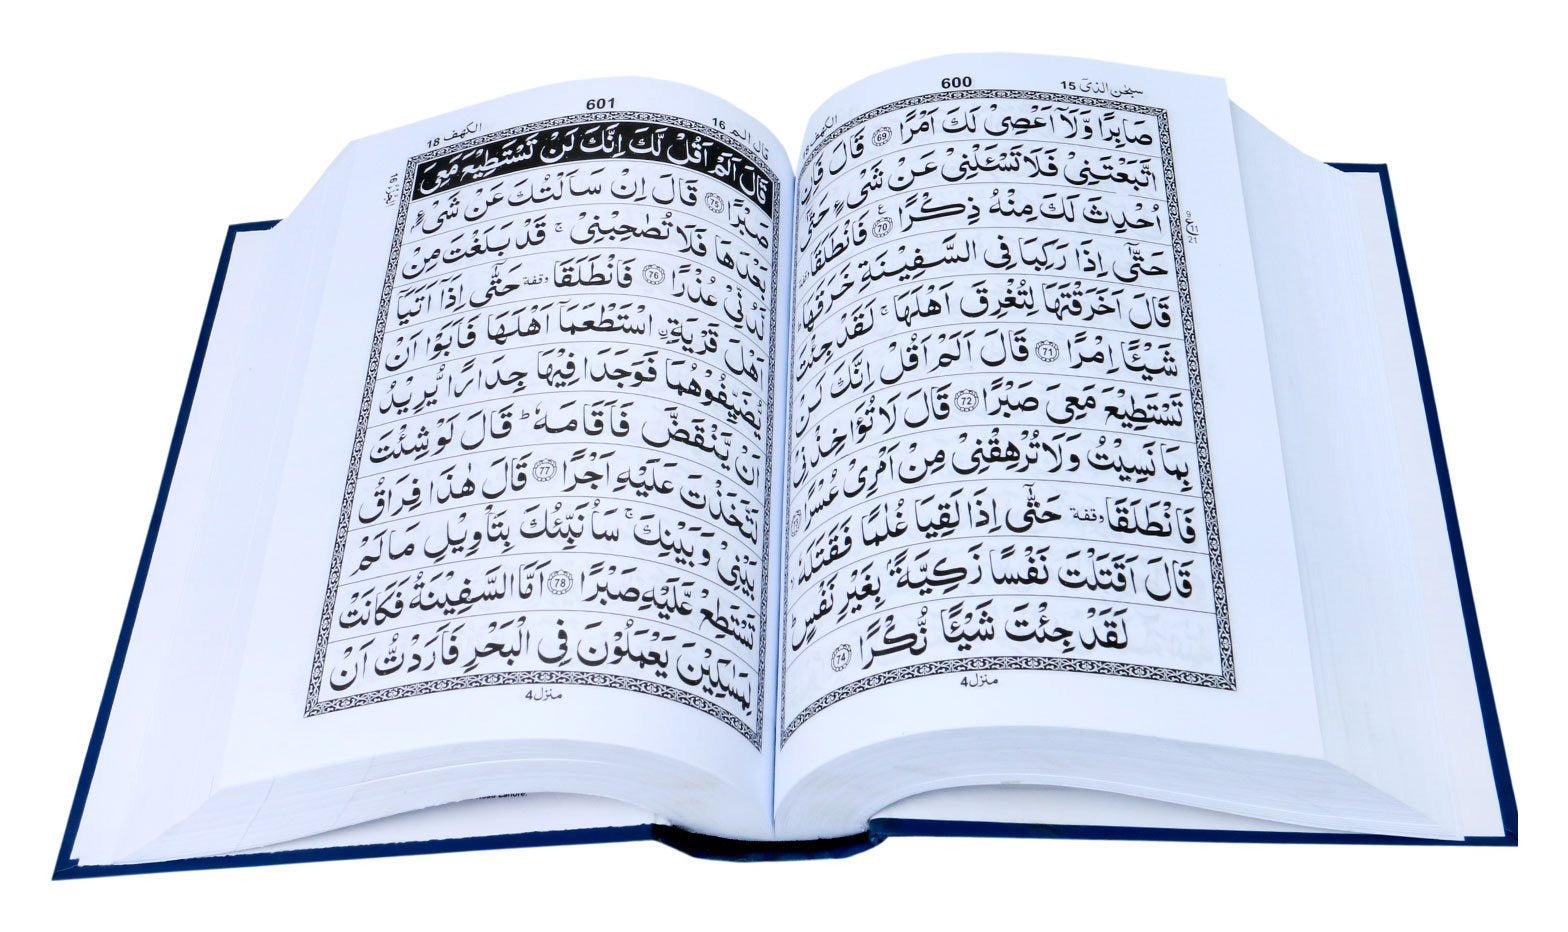 600
سبحٰن الذیٓ 15
الكهف 18
صَابِرًا وَّلَآ اَعْصِیْ لَكَ اَمْرًا 69 قَالَ فَاِنِ
اتَّبَعْتَنِیْ فَلَا تَسْـَٔلْنِیْ عَنْ شَیْءٍ حَتّٰۤی
اُحْدِثَ لَكَ مِنْهُ ذِكْرًا 70 ع فَانْطَلَقَا وقفة
حَتّٰۤی اِذَا رَكِبَا فِی السَّفِیْنَةِ خَرَقَهَا ؕ
قَالَ اَخَرَقْتَهَا لِتُغْرِقَ اَهْلَهَا ۚ لَقَدْ جِئْتَ
شَیْـًٔا اِمْرًا 71 قَالَ اَلَمْ اَقُلْ اِنَّكَ لَنْ
تَسْتَطِیْعَ مَعِیَ صَبْرًا 72 قَالَ لَا تُؤَاخِذْنِیْ
بِمَا نَسِیْتُ وَلَا تُرْهِقْنِیْ مِنْ اَمْرِیْ عُسْرًا 73
فَانْطَلَقَا وقفة حَتّٰۤی اِذَا لَقِیَا غُلٰمًا فَقَتَلَهٗ ۙ
قَالَ اَقَتَلْتَ نَفْسًا زَكِیَّةًۢ بِغَیْرِ نَفْسٍ ؕ
لَقَدْ جِئْتَ شَیْـًٔا نُّكْرًا 74
منزل 4
601
قال الم 16
الكهف 18
قَالَ اَلَمْ اَقُلْ لَّكَ اِنَّكَ لَنْ تَسْتَطِیْعَ مَعِیَ
صَبْرًا 75 قَالَ اِنْ سَاَلْتُكَ عَنْ شَیْءٍۭ
بَعْدَهَا فَلَا تُصٰحِبْنِیْ ۚ قَدْ بَلَغْتَ مِنْ
لَّدُنِّیْ عُذْرًا 76 فَانْطَلَقَا وقفة حَتّٰۤی اِذَاۤ اَتَیَاۤ
اَهْلَ قَرْیَةِۣ اسْتَطْعَمَاۤ اَهْلَهَا فَاَبَوْا اَنْ
یُّضَیِّفُوْهُمَا فَوَجَدَا فِیْهَا جِدَارًا یُّرِیْدُ
اَنْ یَّنْقَضَّ فَاَقَامَهٗ ؕ قَالَ لَوْ شِئْتَ
لَتَّخَذْتَ عَلَیْهِ اَجْرًا 77 قَالَ هٰذَا فِرَاقُ
بَیْنِیْ وَبَیْنِكَ ۚ سَاُنَبِّئُكَ بِتَاْوِیْلِ مَا لَمْ
تَسْتَطِعْ عَّلَیْهِ صَبْرًا 78 اَمَّا السَّفِیْنَةُ فَكَانَتْ
لِمَسٰكِیْنَ یَعْمَلُوْنَ فِی الْبَحْرِ فَاَرَدْتُّ اَنْ
منزل 4